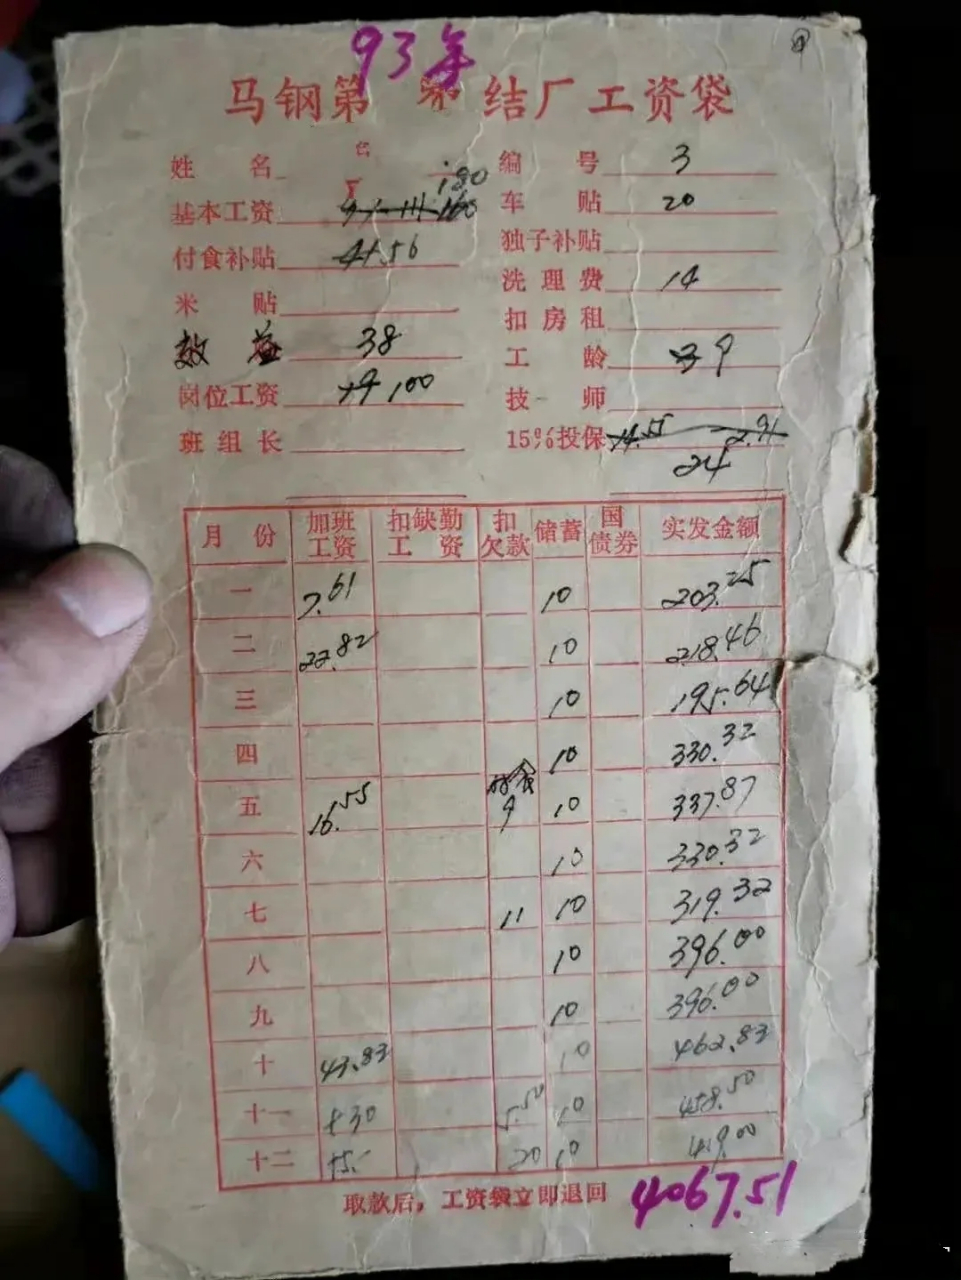 93年
马钢第 结厂工资袋
姓 名 编 号 3
基本工资 180 车 贴 20
付食补贴 41.56 独子补贴
米 贴 洗理费 14
扣房租
效益 38 工 龄 9
岗位工资 100 技 师
班组长 15%投保 14.55 2.91
24
月 份 加班工资 扣缺勤工资 扣欠款 储蓄 国债券 实发金额
一 7.61 10 203.25
二 22.82 10 218.46
三 10 195.64
四 10 330.32
五 16.55 9 10 337.87
六 10 330.32
七 11 10 319.32
八 10 396.00
九 10 396.00
十 43.83 10 462.83
十一 +30 5.50 10 458.50
十二 +5.- 20 10 419.00
取款后，工资袋立即退回 4067.51